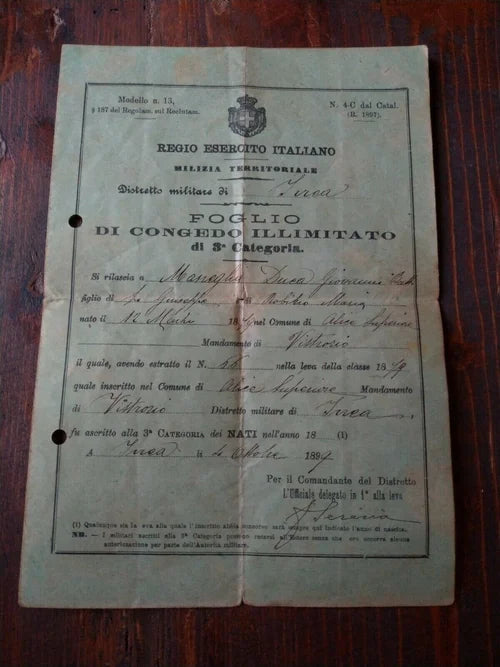 Modello n. 13,
§ 187 del Regolam. sul Reclutam.
N. 4-C dal Catal.
(R. 1897)
REGIO ESERCITO ITALIANO
MILIZIA TERRITORIALE
Distretto militare di Ivrea
FOGLIO
DI CONGEDO ILLIMITATO
di 3ª Categoria.
Si rilascia a Duca Giovanni
figlio di fu Giuseppe e di Maria
nato il 12 1879 nel Comune di Alice Superiore
Mandamento di Vistrorio
il quale, avendo estratto il N. 56 nella leva della classe 1879
quale inscritto nel Comune di Alice Superiore Mandamento
di Vistrorio Distretto militare di Ivrea
fu ascritto alla 3ª CATEGORIA dei NATI nell'anno 18 (1)
A Ivrea li 2 Ottobre 1899
Per il Comandante del Distretto
L'Ufficiale delegato in 1ª alla leva
(1) Qualunque sia la leva alla quale l'inscritto abbia concorso sarà sempre qui indicato l'anno di nascita.
NB. — I militari ascritti alla 3ª Categoria possono recarsi all'Estero senza che ora occorra alcuna
autorizzazione per parte dell'Autorità militare.